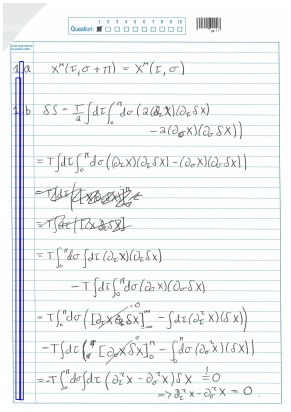 Question: 1 2 3 4 5 6 7 8 9 10
1.a X^μ(τ,σ+π) = X^μ(τ,σ)
1.b δS = T/2 ∫dτ∫₀^π dσ (2(∂_τX)(∂_τδX)
- 2(∂_σX)(∂_σδX))
= T∫dτ∫₀^π dσ((∂_τX)(∂_τδX) - (∂_σX)(∂_σδX))
= T∫₀^π dσ∫dτ(∂_τX)(∂_τδX)
- T∫dτ∫₀^π dσ(∂_σX)(∂_σδX)
= T∫₀^π dσ([∂_τX δX]_{-∞}^{∞} → 0 - ∫dτ(∂_τ²X)(δX))
- T∫dτ([∂_σX δX]₀^π → 0 - ∫₀^π dσ(∂_σ²X)(δX))
= -T∫₀^π dσ∫dτ(∂_τ²X - ∂_σ²X)δX != 0
⇒ ∂_τ²X - ∂_σ²X = 0